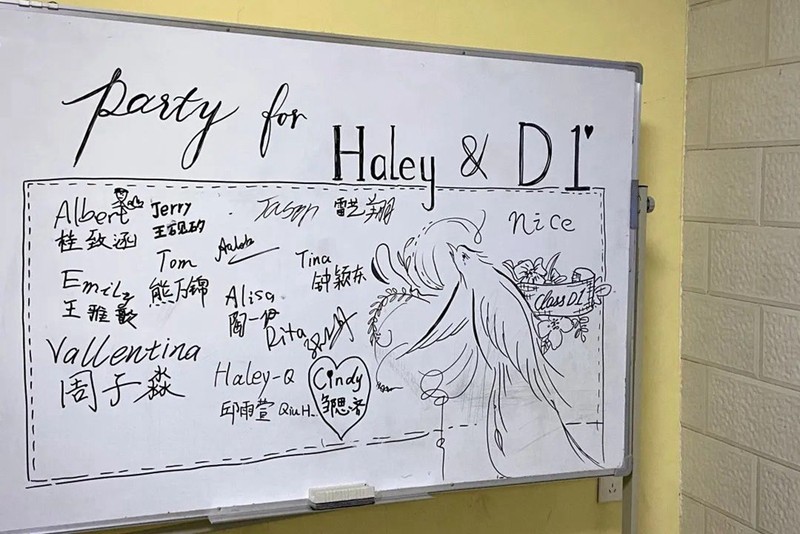 Party for
Haley & D1
Albert
桂致函
Jerry
Jason
Nice
Tom
熊万锦
Tina
钟颖东
Emily
王雅歆
Alisa
陶一
Rita
Class D1
Vallentina
周子淼
Haley-Q
邱雨萱 Qiu H.
Cindy
邹思音